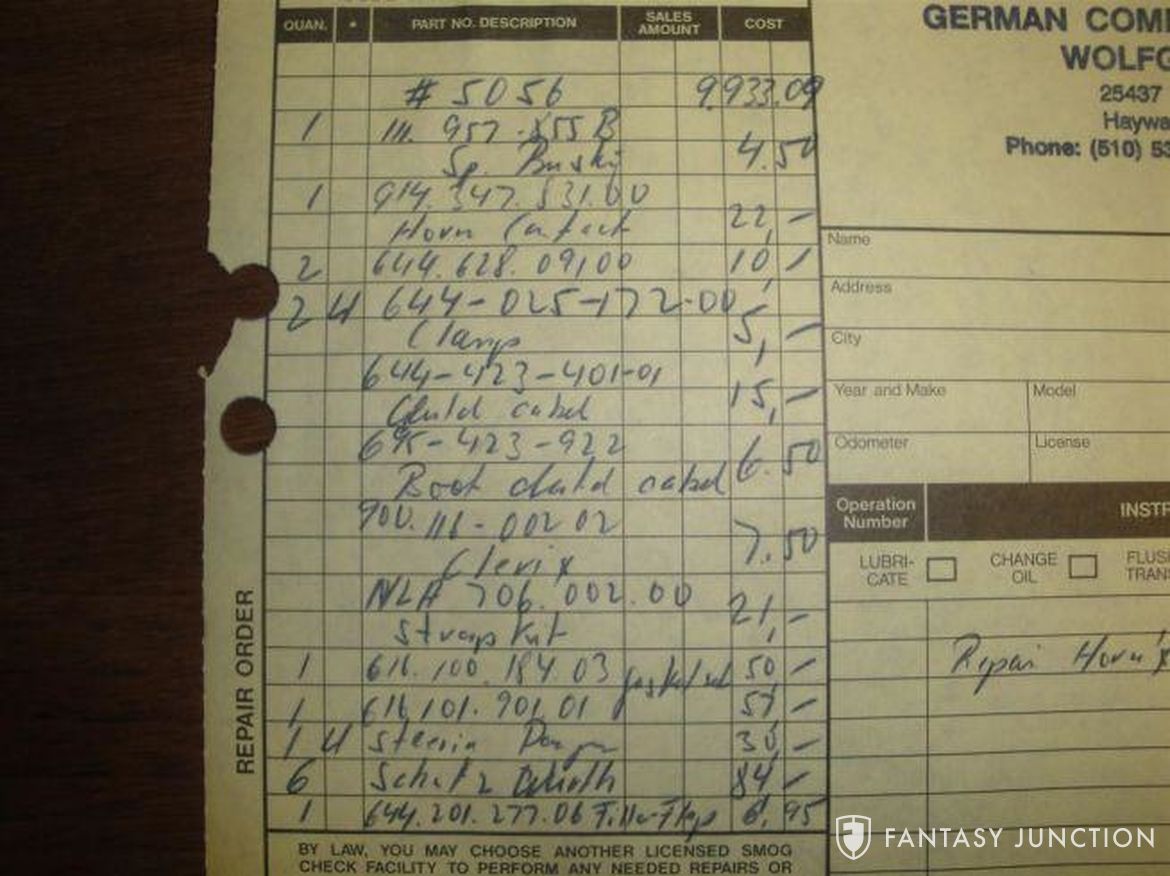 QUAN. * PART NO. DESCRIPTION SALES AMOUNT COST
# 5056 9,933.09
1 111. 957. 855 B
Sp. 4.50
1 914. 347. 831.00
Horn Contact 22,-
2 644. 628. 09,00 10,-
2 4 644-025-172-00
Clamp 5,-
644-423-401-01
cabel 15,-
695-423-922
Boot cabel 6.50
900. 111-002 02
Clevis 7.50
NLA 706. 002. 00
Strap Kit 21,-
1 616. 100. 184 03 50-
1 616 101. 901 01
1 4 30,-
6 Schutz 84-
1 644. 201. 277. 06 6,95
REPAIR ORDER
BY LAW, YOU MAY CHOOSE ANOTHER LICENSED SMOG
CHECK FACILITY TO PERFORM ANY NEEDED REPAIRS OR
GERMAN COM
WOLFG
25437
Haywa
Phone: (510) 53
Name
Address
City
Year and Make Model
Odometer License
Operation Number INSTR
LUBRI-CATE CHANGE OIL FLUS TRAN
Repair Horn
FANTASY JUNCTION